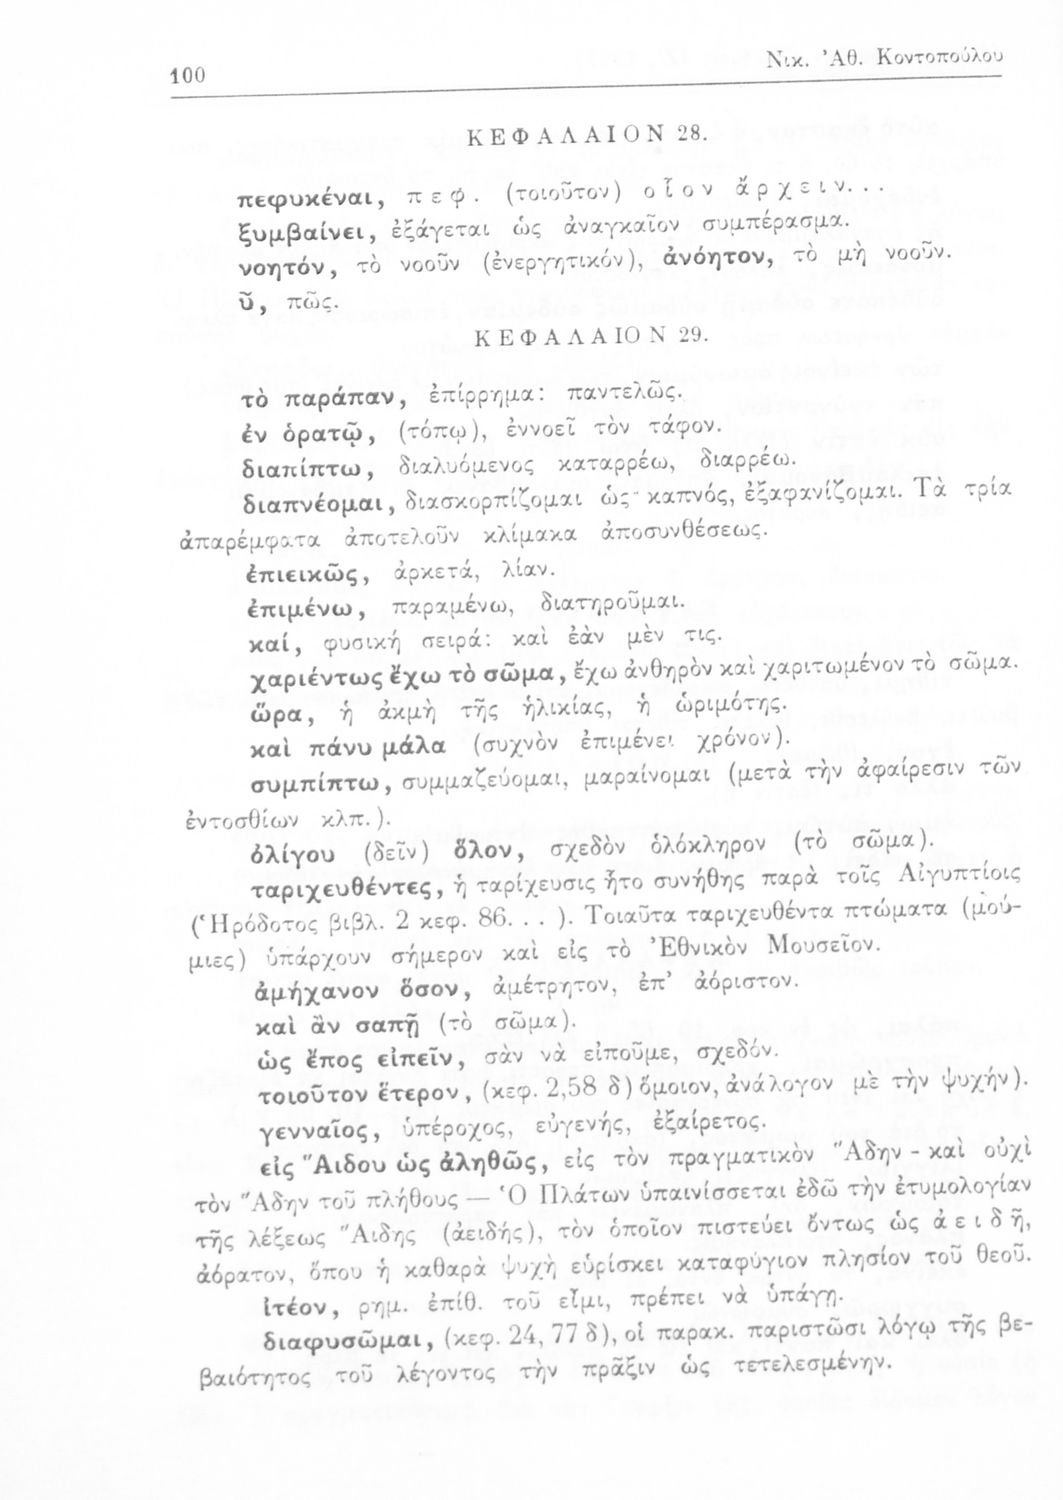 100
Νικ. Ἀθ. Κοντοπούλου
ΚΕΦΑΛΑΙΟΝ 28.
πεφυκέναι, πεφ. (τοιοῦτον) οἷον ἄρχειν...
ξυμβαίνει, ἐξάγεται ὡς ἀναγκαῖον συμπέρασμα.
νοητόν, τὸ νοοῦν (ἐνεργητικόν), ἀνόητον, τὸ μὴ νοοῦν.
ῦ, πῶς.
ΚΕΦΑΛΑΙΟΝ 29.
τὸ παράπαν, ἐπίρρημα: παντελῶς.
ἐν ὁρατῷ, (τόπῳ), ἐννοεῖ τὸν τάφον.
διαπίπτω, διαλυόμενος καταρρέω, διαρρέω.
διαπνέομαι, διασκορπίζομαι ὡς καπνός, ἐξαφανίζομαι. Τὰ τρία
ἀπαρέμφατα ἀποτελοῦν κλίμακα ἀποσυνθέσεως.
ἐπιεικῶς, ἀρκετά, λίαν.
ἐπιμένω, παραμένω, διατηροῦμαι.
καί, φυσική σειρά: καὶ ἐὰν μὲν τις.
χαριέντως ἔχω τὸ σῶμα, ἔχω ἀνθηρὸν καὶ χαριτωμένον τὸ σῶμα.
ὥρα, ἡ ἀκμὴ τῆς ἡλικίας, ἡ ὡριμότης.
καὶ πάνυ μάλα (συχνὸν ἐπιμένει χρόνον).
συμπίπτω, συμμαζεύομαι, μαραίνομαι (μετὰ τὴν ἀφαίρεσιν τῶν
ἐντοσθίων κλπ.).
ὀλίγου (δεῖν) ὅλον, σχεδὸν ὁλόκληρον (τὸ σῶμα).
ταριχευθέντες, ἡ ταρίχευσις ἦτο συνήθης παρὰ τοῖς Αἰγυπτίοις
(Ἡρόδοτος βιβλ. 2 κεφ. 86... ). Τοιαῦτα ταριχευθέντα πτώματα (μού-
μιες) ὑπάρχουν σήμερον καὶ εἰς τὸ Ἐθνικὸν Μουσεῖον.
ἀμήχανον ὅσον, ἀμέτρητον, ἐπ’ ἀόριστον.
καὶ ἂν σαπῇ (τὸ σῶμα).
ὡς ἔπος εἰπεῖν, σὰν νὰ εἰποῦμε, σχεδόν.
τοιοῦτον ἕτερον, (κεφ. 2,58 δ) ὅμοιον, ἀνάλογον μὲ τὴν ψυχήν).
γενναῖος, ὑπέροχος, εὐγενής, ἐξαίρετος.
εἰς Ἅιδου ὡς ἀληθῶς, εἰς τὸν πραγματικὸν Ἅδην - καὶ οὐχὶ
τὸν Ἅδην τοῦ πλήθους — Ὁ Πλάτων ὑπαινίσσεται ἐδῶ τὴν ἐτυμολογίαν
τῆς λέξεως Ἅιδης (ἀειδής), τὸν ὁποῖον πιστεύει ὄντως ὡς ἀειδῆ,
ἀόρατον, ὅπου ἡ καθαρὰ ψυχὴ εὑρίσκει καταφύγιον πλησίον τοῦ θεοῦ.
ἰτέον, ρημ. ἐπίθ. τοῦ εἶμι, πρέπει νὰ ὑπάγῃ.
διαφυσῶμαι, (κεφ. 24, 77 δ), οἱ παρακ. παριστῶσι λόγῳ τῆς βε-
βαιότητος τοῦ λέγοντος τὴν πρᾶξιν ὡς τετελεσμένην.